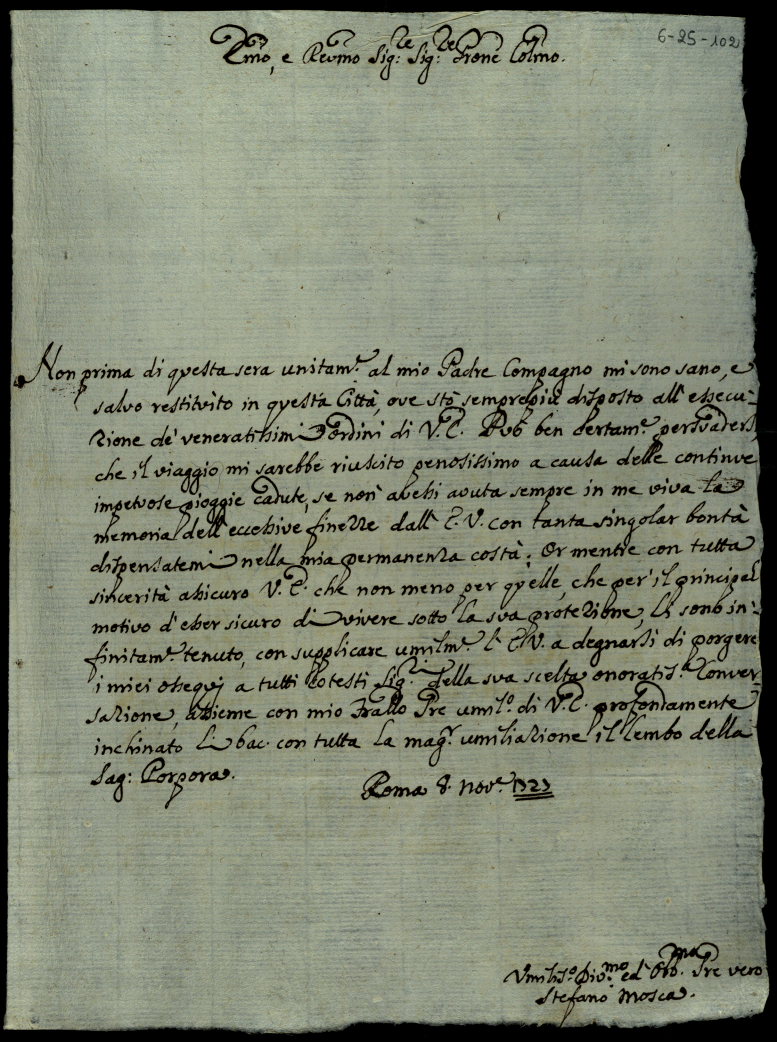 6-25-102
Emo, e Revmo Sig:re Sig:re Prone Colmo.
Non prima di questa sera unitam.e al mio Padre Compagno mi sono sano, e
salvo restituito in questa Città, ove stò semprepiù disposto all'essecu-
zione de' veneratissimi ordini di V.E. Può ben certam.e persuadersi,
che il viaggio mi sarebbe riuscito penosissimo a causa delle continue
impetuose pioggie cadute, se non avessi avuta sempre in me viva la
memoria dell'eccessive finezze dall'E.V. con tanta singolar bontà
dispensatemi nella mia permanenza costà; Or mentre con tutta
sincerità assicuro V.E. che non meno per quelle, che per il principal
motivo d'esser sicuro di vivere sotto la sua protezione, Li sono in-
finitam.e tenuto, con supplicare umilm.e l'E.V. a degnarsi di porgere
i miei ossequj a tutti cotesti Sig.i della sua scelta onoratis.a Conver-
sazione, assieme con mio Frallo Pre umil.o di V.E. profondamente
inchinato Li bac. con tutta la mag.r umiliazione il lembo della
Sag: Porpora.
Roma 8. Nov.e 1723
Umilis.o Div.mo ed Obb.mo Sre vero
Stefano Mosca.